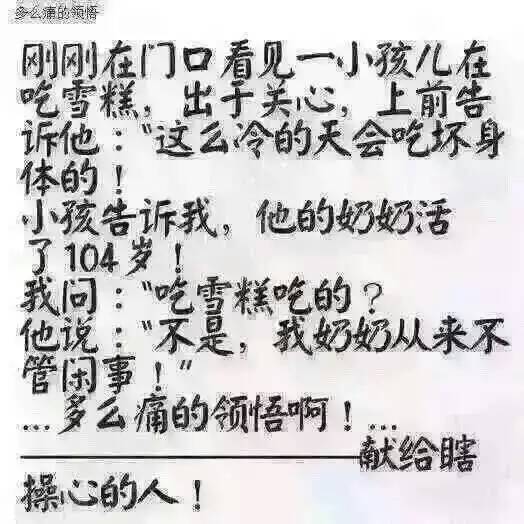 多么痛的领悟
刚刚在门口看见一小孩儿在
吃雪糕，出于关心，上前告
诉他："这么冷的天会吃坏身
体的！
小孩告诉我，他的奶奶活
了104岁！
我问："吃雪糕吃的？
他说："不是，我奶奶从来不
管闲事！"
...多么痛的领悟啊！...
————————————献给瞎
操心的人！